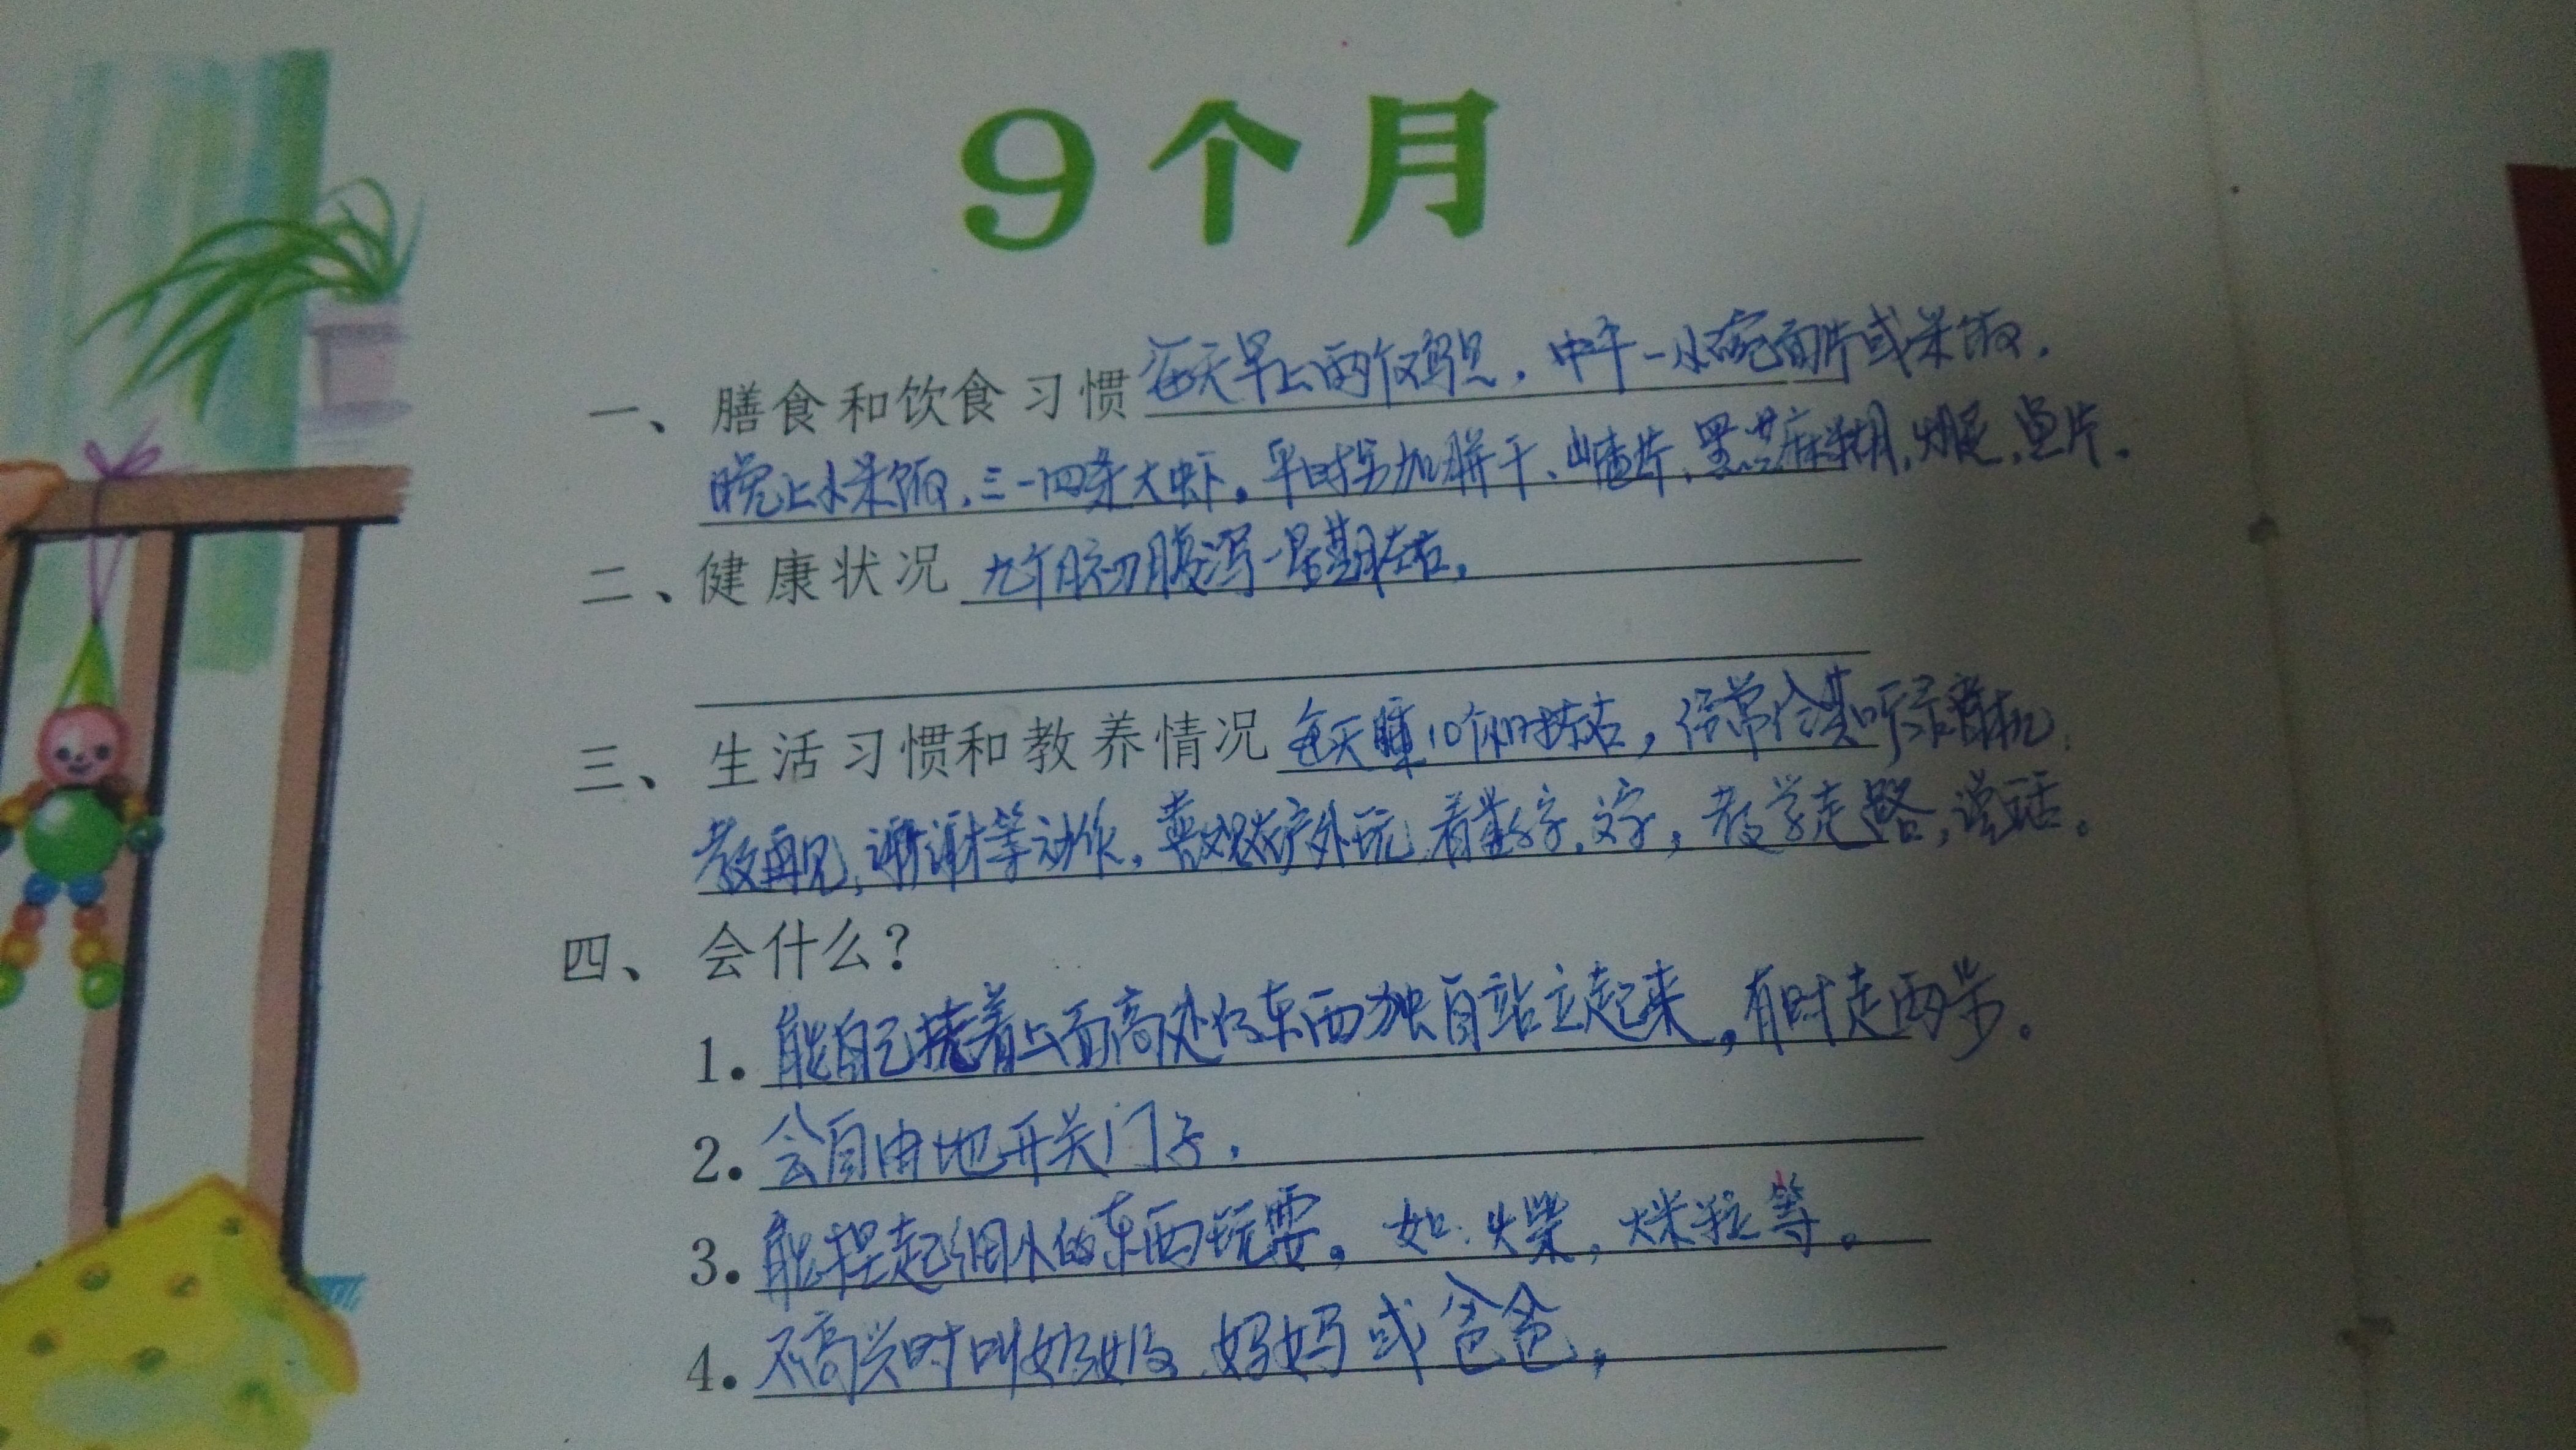 9个月
一、膳食和饮食习惯 每天早上两个鸡旦，中午一小碗面片或米饭.
晚上小米饭，三—四条大虾。平时另加饼干、山楂片、黑芝麻糊，火腿，鱼片。
二、健康状况 九个月初腹泻一星期左右，
三、生活习惯和教养情况 每天睡10个小时左右，经常给其听录音机.
教再见，谢谢等动作，喜欢户外玩，看数字，文字，教学走路，说话。
四、会什么？
1. 能自己扶着上面高处的东西独自站立起来，有时走两步。
2. 会自由地开关门子.
3. 能捏起细小的东西玩耍。如：火柴，大米粒等。
4. 不高兴时叫奶奶、妈妈或爸爸，